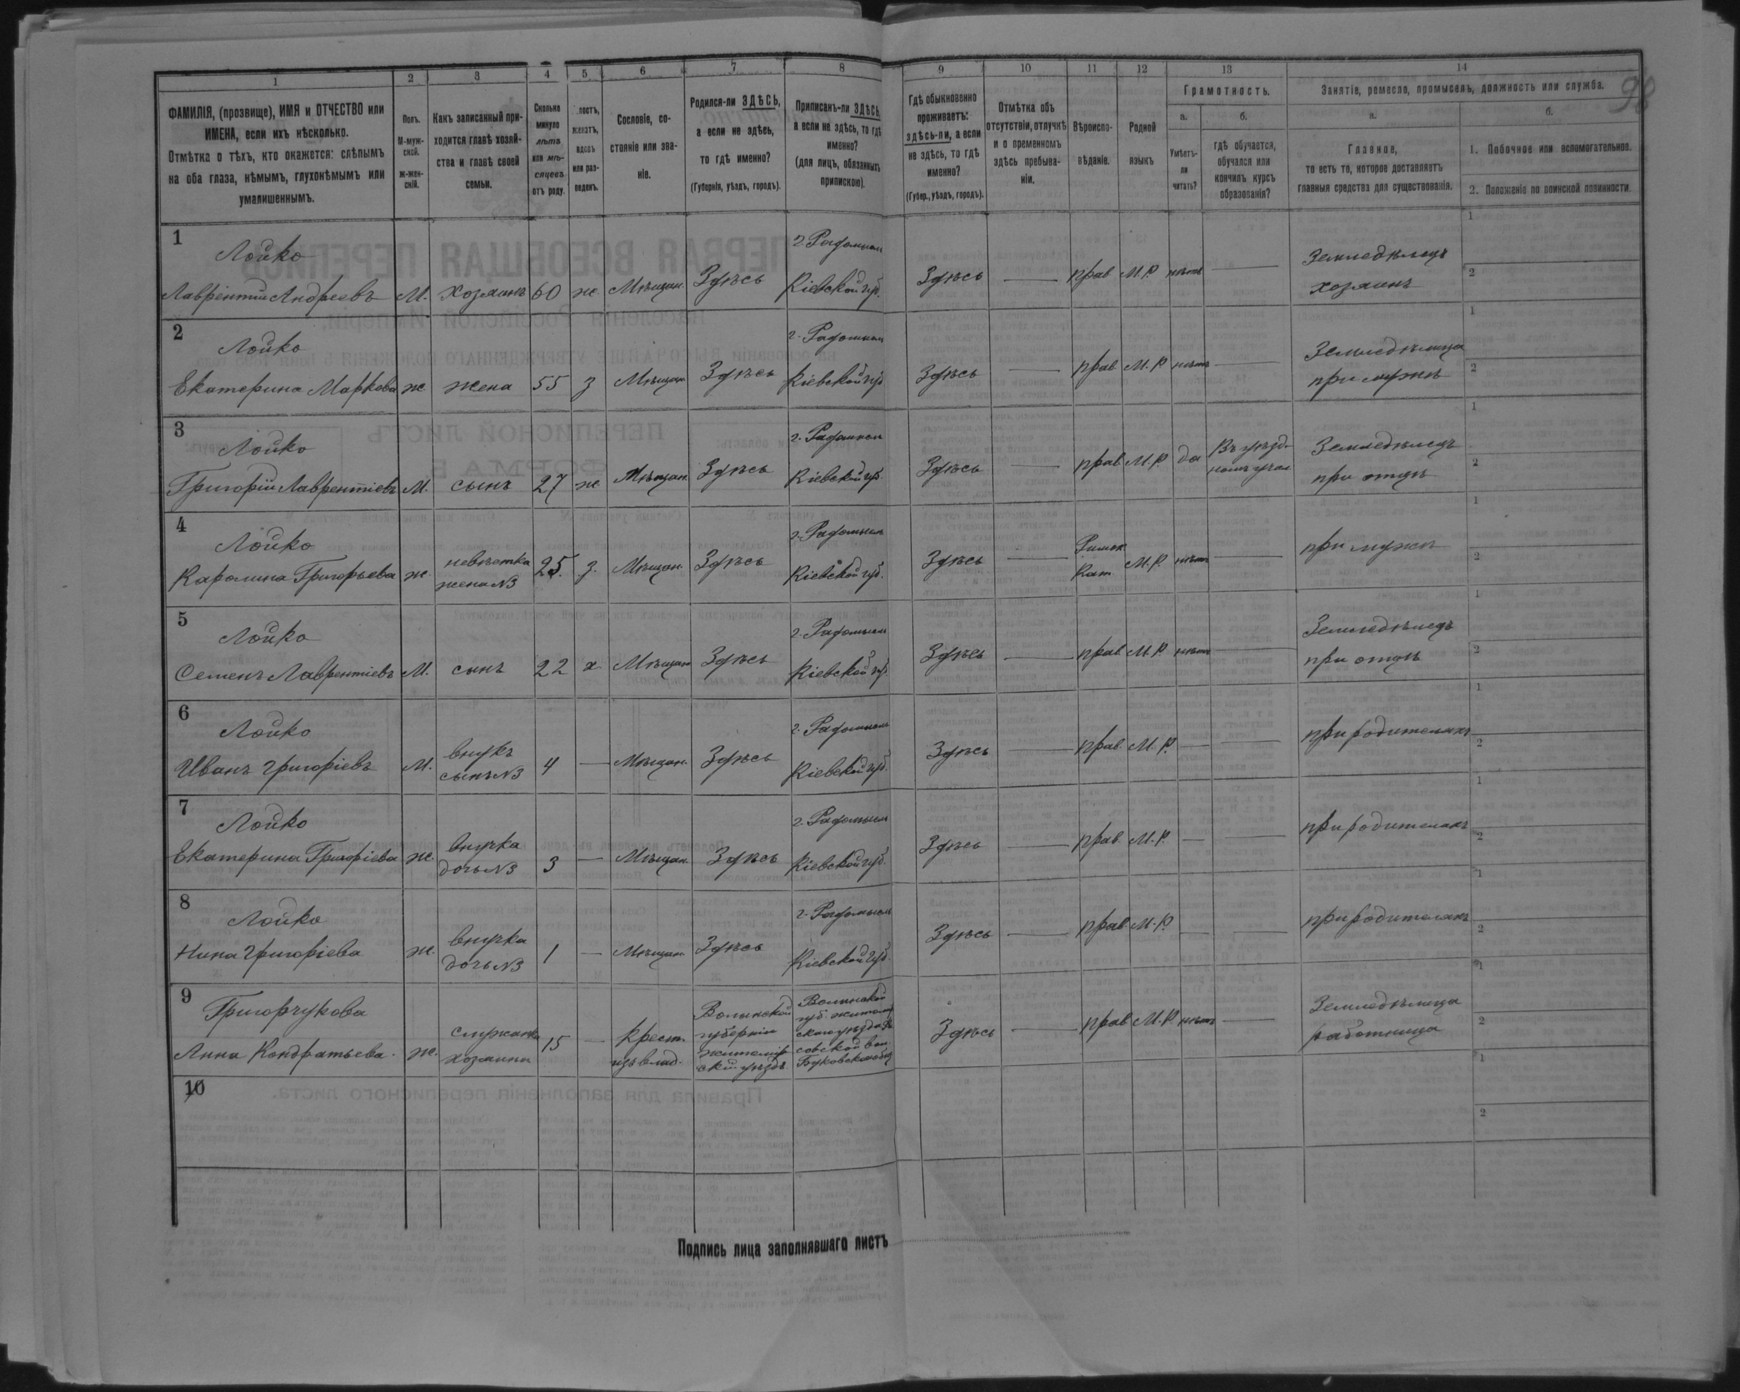 98
1 2 3 4 5 6 7 8 9 10 11 12 13 14
ФАМИЛІЯ, (прозвище), ИМЯ и ОТЧЕСТВО или
ИМЕНА, если ихъ нѣсколько.
Отмѣтка о тѣхъ, кто окажется: слѣпымъ
на оба глаза, нѣмымъ, глухонѣмымъ или
умалишеннымъ.
Полъ.
М-муж-
ской.
ж-жен-
скій.
Какъ записанный при-
ходится главѣ хозяй-
ства и главѣ своей
семьи.
Сколько
минуло
лѣтъ
или мѣ-
сяцевъ
отъ роду.
лостъ,
женатъ,
вдовъ
или раз-
веденъ.
Сословіе, со-
стояніе или зва-
ніе.
Родился-ли ЗДѢСЬ,
а если не здѣсь,
то гдѣ именно?
(Губернія, уѣздъ, городъ).
Приписанъ-ли ЗДѢСЬ,
а если не здѣсь, то гдѣ
именно?
(для лицъ, обязанныхъ
припискою).
Гдѣ обыкновенно
проживаетъ:
здѣсь-ли, а если
не здѣсь, то гдѣ
именно?
(Губер., уѣздъ, городъ).
Отмѣтка объ
отсутствіи, отлучкѣ
и о временномъ
здѣсь пребыва-
ніи.
Вѣроиспо-
вѣданіе.
Родной
языкъ
Грамотность.
а.
Умѣетъ-
ли
читать?
б.
гдѣ обучается,
обучался или
кончилъ курсъ
образованія?
Занятіе, ремесло, промыселъ, должность или служба.
а.
Главное,
то есть то, которое доставляетъ
главныя средства для существованія.
б.
1. Побочное или вспомогательное.
2. Положеніе по воинской повинности.
1
Лойко
Лаврентій Андреевъ М. хозяинъ 60 ж Мѣщан. Здѣсь
г. Радомысл
Кіевской губ.
Здѣсь — прав М.Р. нѣтъ —
Земледѣлецъ
хозяинъ
1
2
2
Лойко
Екатерина Маркева ж жена 55 з Мѣщан Здѣсь
г. Радомысл
Кіевской губ
Здѣсь — прав М.Р нѣтъ —
Земледѣлица
при мужѣ
1
2
3
Лойко
Григорій Лаврентіевъ М. сынъ 27 ж Мѣщан Здѣсь
г. Радомысл
Кіевской губ.
Здѣсь — прав М.Р да
Въ уѣзд-
номъ учил
Земледѣлецъ
при отцѣ
1
2
4
Лойко
Каролина Григорьева ж
невѣстка
жена №3
25. з. Мѣщан Здѣсь
г. Радомысл
Кіевской губ.
Здѣсь —
Римск
Кат
М.Р нѣтъ —
при мужѣ
1
2
5
Лойко
Семенъ Лаврентіевъ М. сынъ 22 х Мѣщан Здѣсь
г. Радомысл
Кіевской губ.
Здѣсь — прав М.Р нѣтъ —
Земледѣлецъ
при отцѣ
1
2
6
Лойко
Иванъ Григоріевъ М.
внукъ
сынъ №3
4 — Мѣщан. Здѣсь
г. Радомысл
Кіевской губ.
Здѣсь — прав М.Р. — —
при родителяхъ
1
2
7
Лойко
Екатерина Григоріева ж.
внучка
дочь №3
3 — Мѣщан. Здѣсь
г. Радомысл
Кіевской губ.
Здѣсь — прав. М.Р. — —
при родителяхъ
1
2
8
Лойко
Нина Григоріева ж.
внучка
дочь №3
1 — Мѣщан. Здѣсь
г. Радомысл
Кіевской губ
Здѣсь — прав М.Р. — —
при родителяхъ
1
2
9
Григорчукова
Анна Кондратьева. ж.
служанка
хозяина
15 —
Крест.
изъ влад.
Волынской
губерніи
житомір
ской уѣздъ
Волынской
губ. житом
скаго уѣзда
Здѣсь — прав М.Р нѣтъ —
Земледѣлица
работница
1
2
10
1
2
Подпись лица заполнявшаго листъ